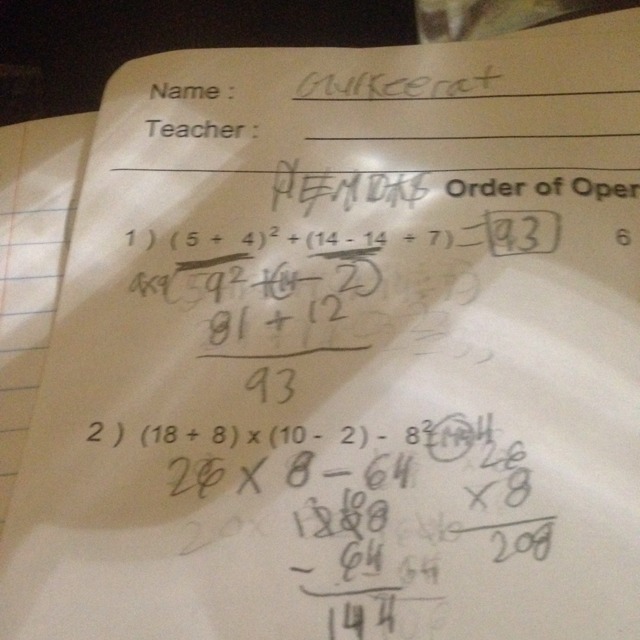 Name : Gurkeerat
Teacher :
PEMDAS Order of Oper
1 ) ( 5 + 4 )² + (14 - 14 ÷ 7) = 93 6
9² + (14 - 2)
81 + 12
93
2 ) (18 + 8) x (10 - 2) - 8² =
26 x 8 - 64
26
x 8
208
- 64
144